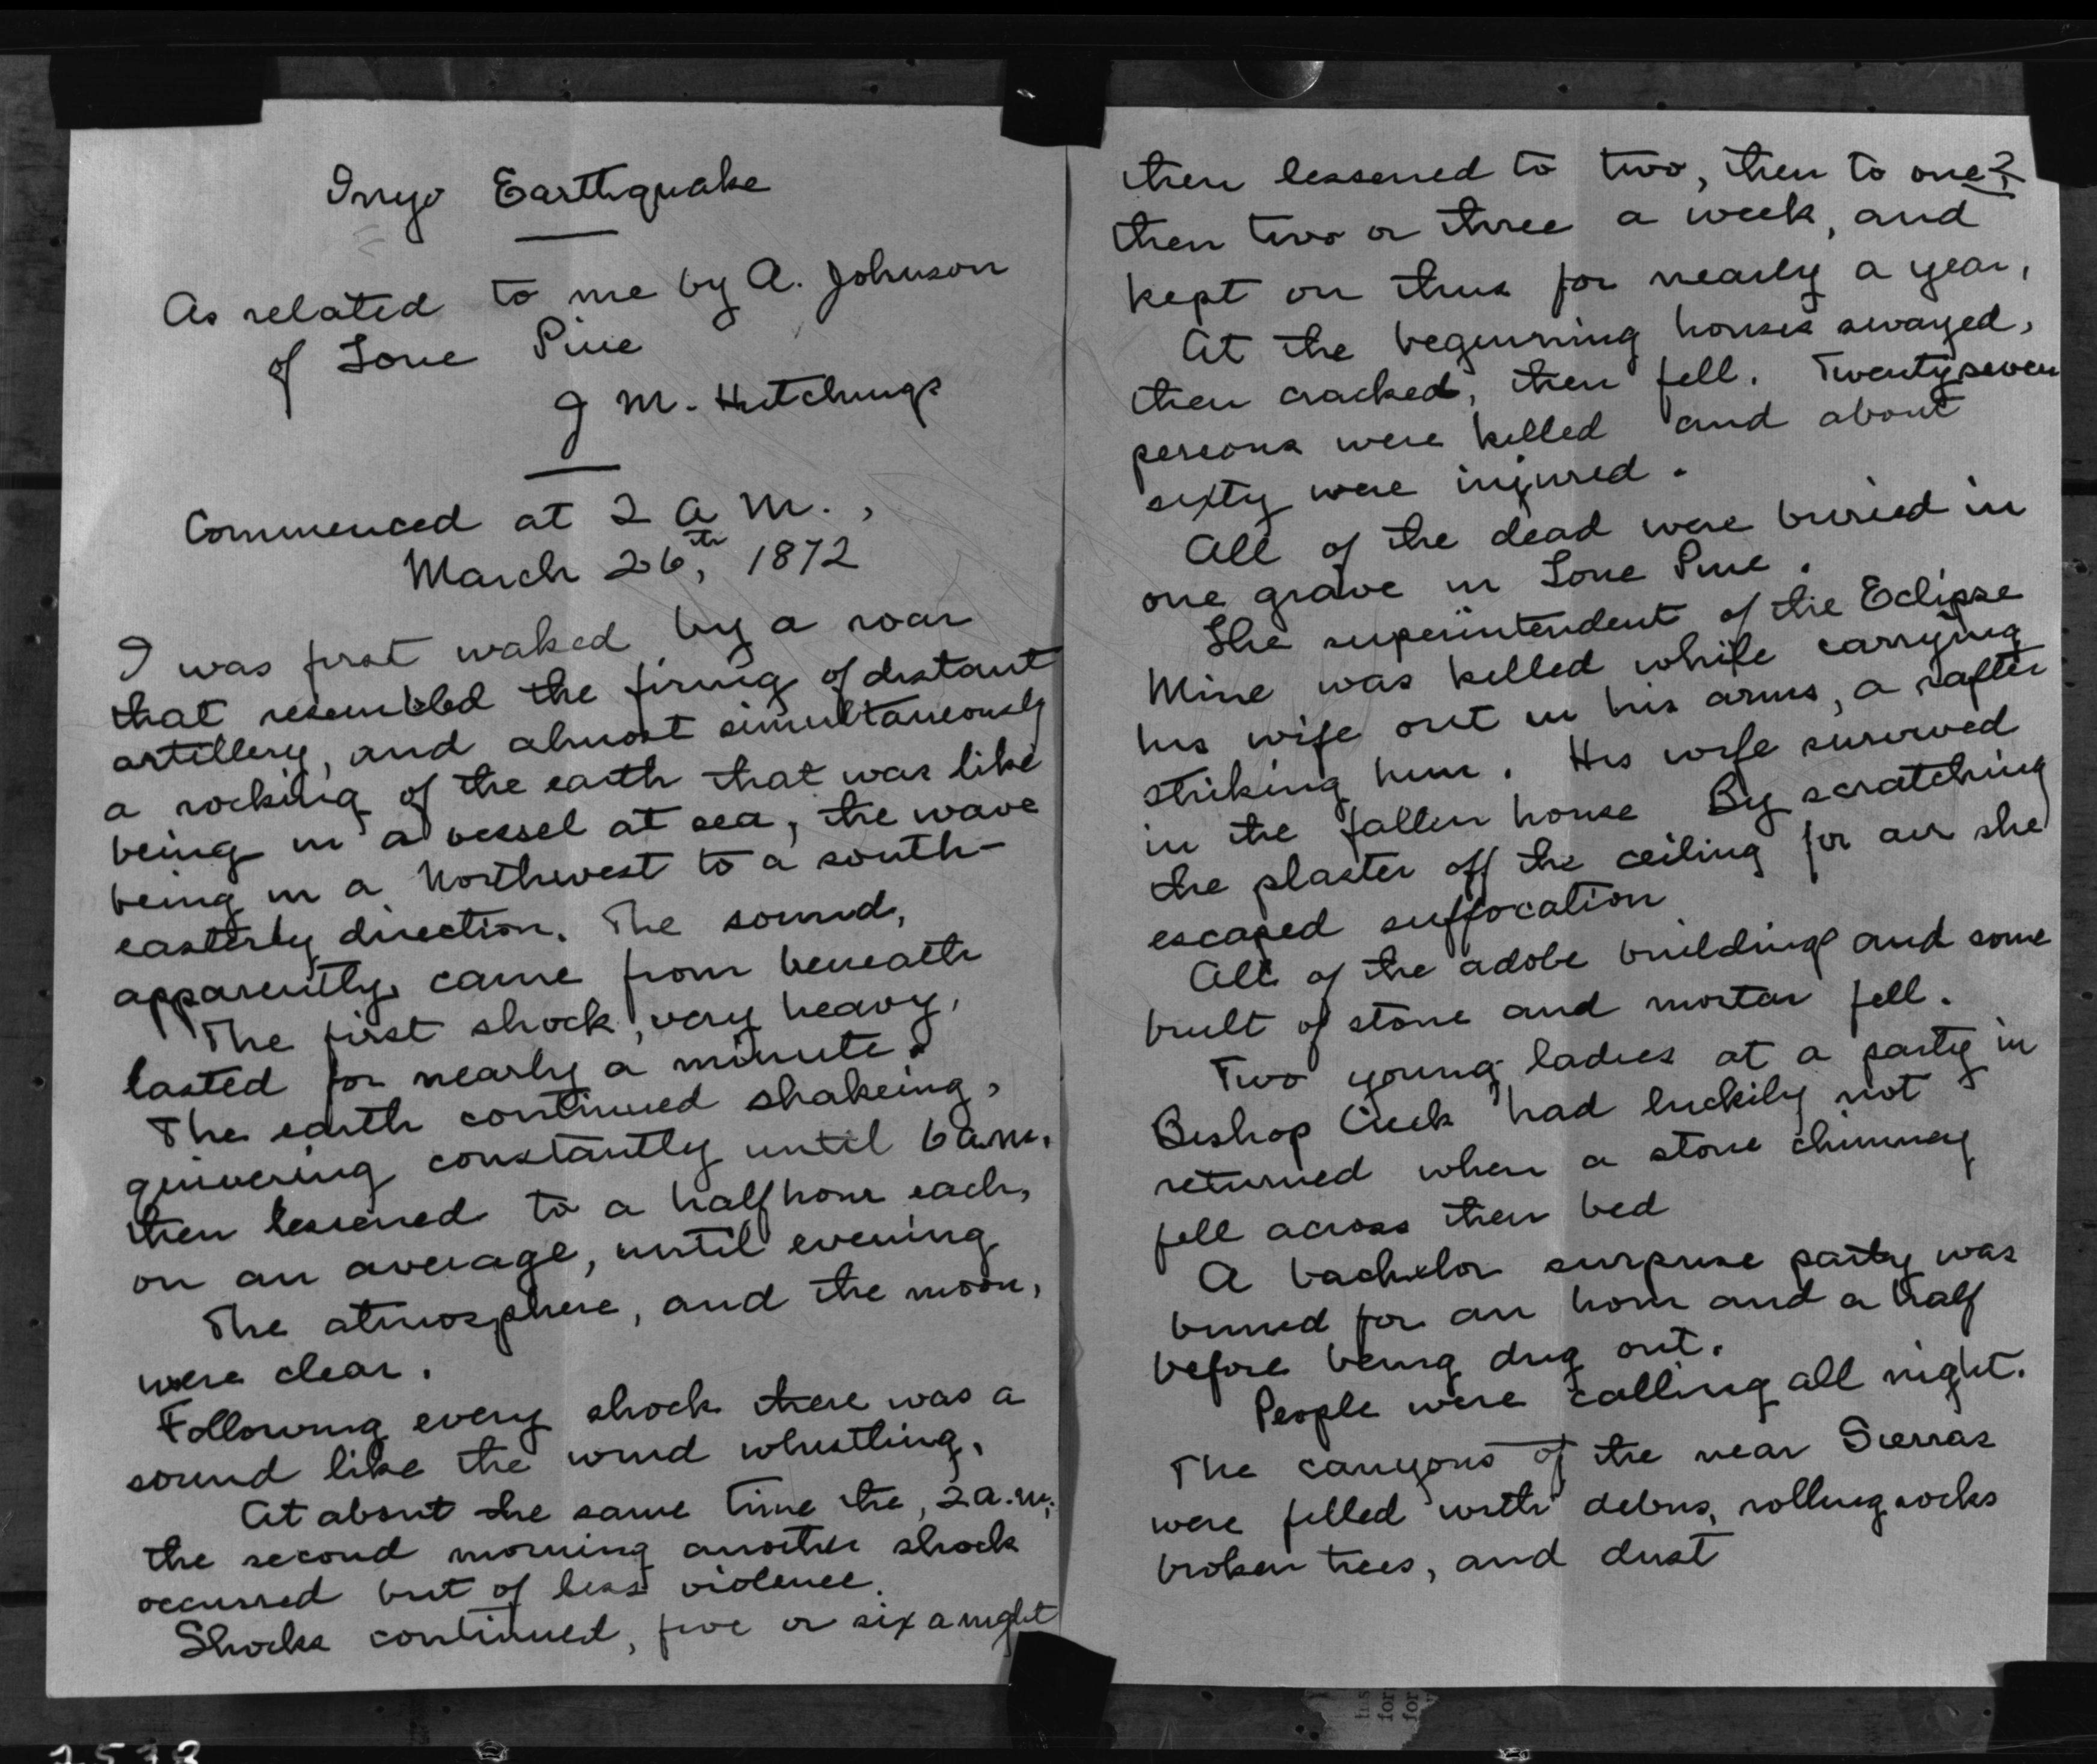 Inyo Earthquake
As related to me by A. Johnson
of Lone Pine
J M. Hutchings
Commenced at 2 a m.,
March 26th, 1872
I was first waked by a roar
that resembled the firing of distant
artillery, and almost simultaneously
a rocking of the earth that was like
being in a vessel at sea, the wave
being in a Northwest to a south-
easterly direction. The sound,
apparently, came from beneath
The first shock, very heavy,
lasted for nearly a minute.
The earth continued shakeing,
quivering constantly until 6 a.m.
then lessened to a half hour each,
on an average, until evening
The atmosphere, and the moon,
were clear.
Following every shock there was a
sound like the wind whistling.
At about the same time the, 2 a.m.
the second morning another shock
occurred but of less violence.
Shocks continued, five or six a night
then lessened to two, then to one?
then two or three a week, and
kept on thus for nearly a year,
At the beginning houses swayed,
then cracked, then fell. Twenty seven
persons were killed and about
sixty were injured.
All of the dead were buried in
one grave in Lone Pine.
The superintendent of the Eclipse
Mine was killed while carrying
his wife out in his arms, a rafter
striking him. His wife survived
in the fallen house By scratching
the plaster off the ceiling for air she
escaped suffocation
All of the adobe buildings and some
built of stone and mortar fell.
Two young ladies at a party in
Bishop Creek had luckily not
returned when a stone chimney
fell across their bed
A bachelor surprise party was
buried for an hour and a half
before being dug out.
People were calling all night.
The canyons of the near Sierras
were filled with debris, rolling rocks
broken trees, and dust
his
for
for
2538